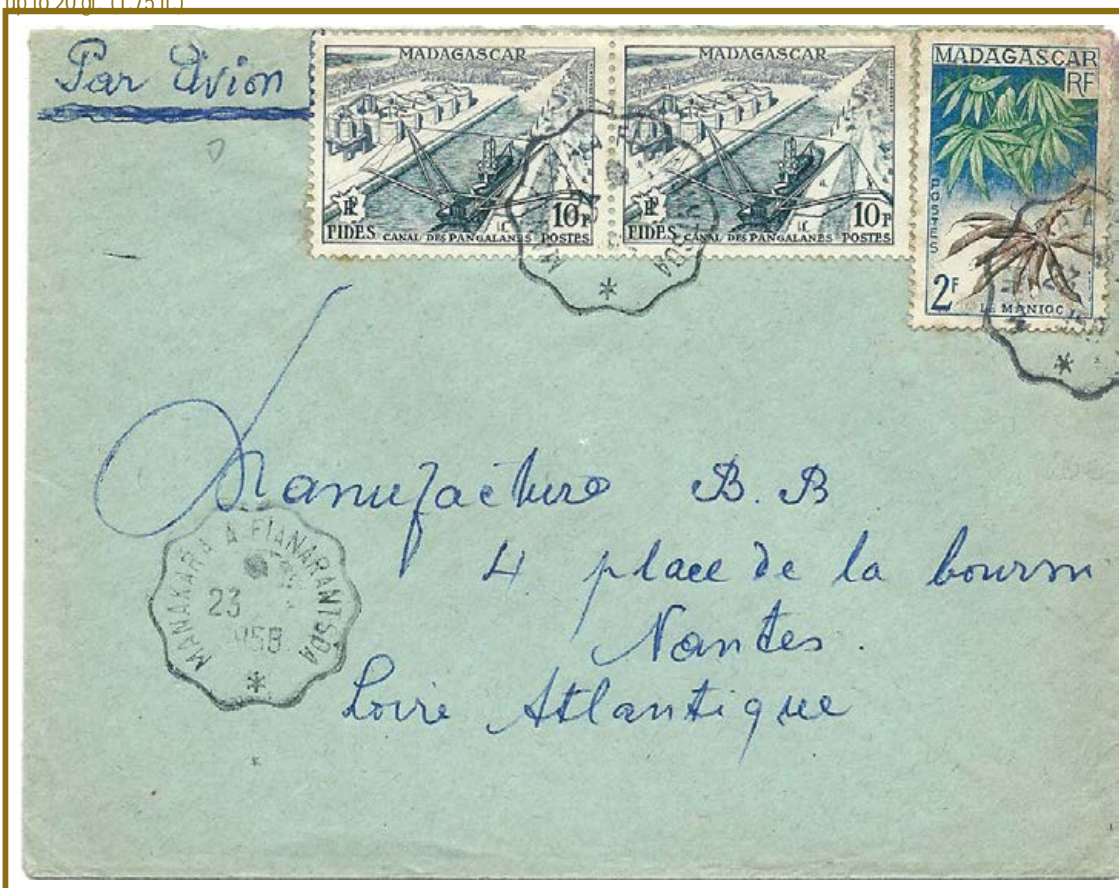 Par Avion
MADAGASCAR
RF
10F
FIDES CANAL DES PANGALANES POSTES
MADAGASCAR
RF
10F
FIDES CANAL DES PANGALANES POSTES
MADAGASCAR
RF
POSTES
2F
LE MANIOC
Manufacture B. B
4 place de la bourse
Nantes.
Loire Atlantique
MANAKARA A FIANARANTSOA
23